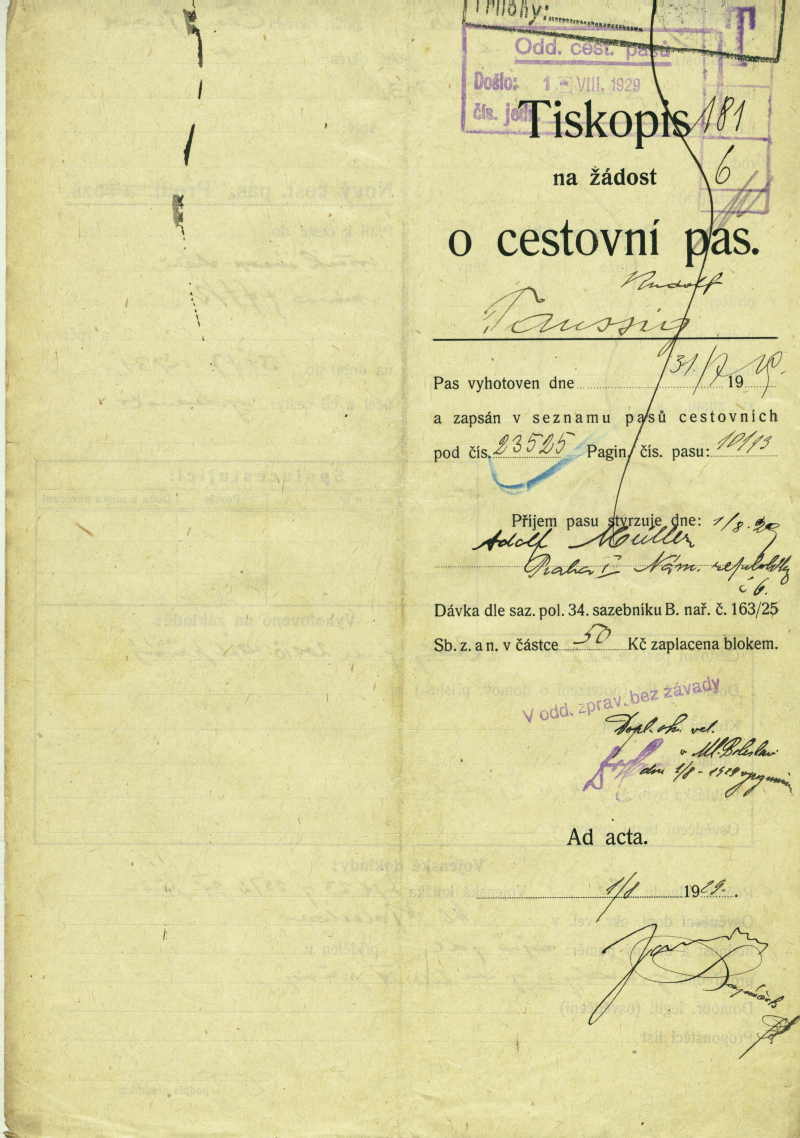 Přílohy:
Odd. cest. pasů
Došlo: 1 - VIII. 1929
čís. jedn.
Tiskopis 181
na žádost 6
o cestovní pas.
Rudolf
Taussig
Pas vyhotoven dne 31/7 1929.
a zapsán v seznamu pasů cestovních
pod čís. 23525 Pagin. čís. pasu: 10113
Příjem pasu stvrzuje dne: 1/8. 29
Adolf Müller
Praha I Nám. republiky
č 6.
Dávka dle saz. pol. 34. sazebníku B. nař. č. 163/25
Sb. z. a n. v částce 50 Kč zaplacena blokem.
V odd. zprav. bez závady
Dopl. okr. vel.
v Ml. Boleslavi
dne 1/8 - 1929
Ad acta.
1/8 1929.